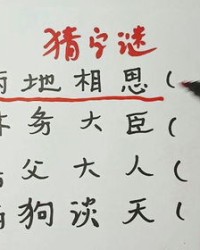 猜字谜
地相思(
务大臣(
父大人(
狗谈天(